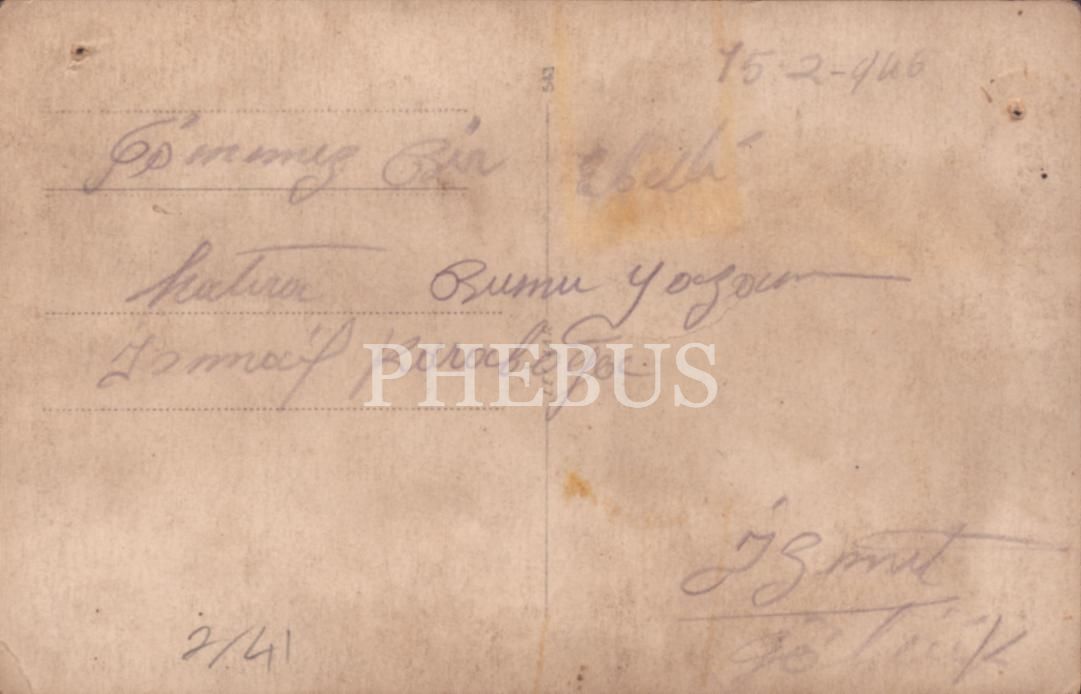 15-2-946
Sönmez Bir Ebedi
Hatıra Bunu yazan
İsmail Karaboğa
PHEBUS
İzmit
Gölcük
2/41